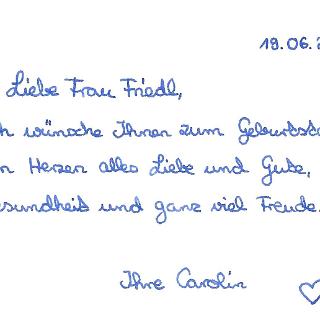 19.06.2
Liebe Frau Friedl,
ch wünsche Ihnen zum Geburtsta
n Herzen alles Liebe und Gute,
esundheit und ganz viel Freude.
Ihre Carolin